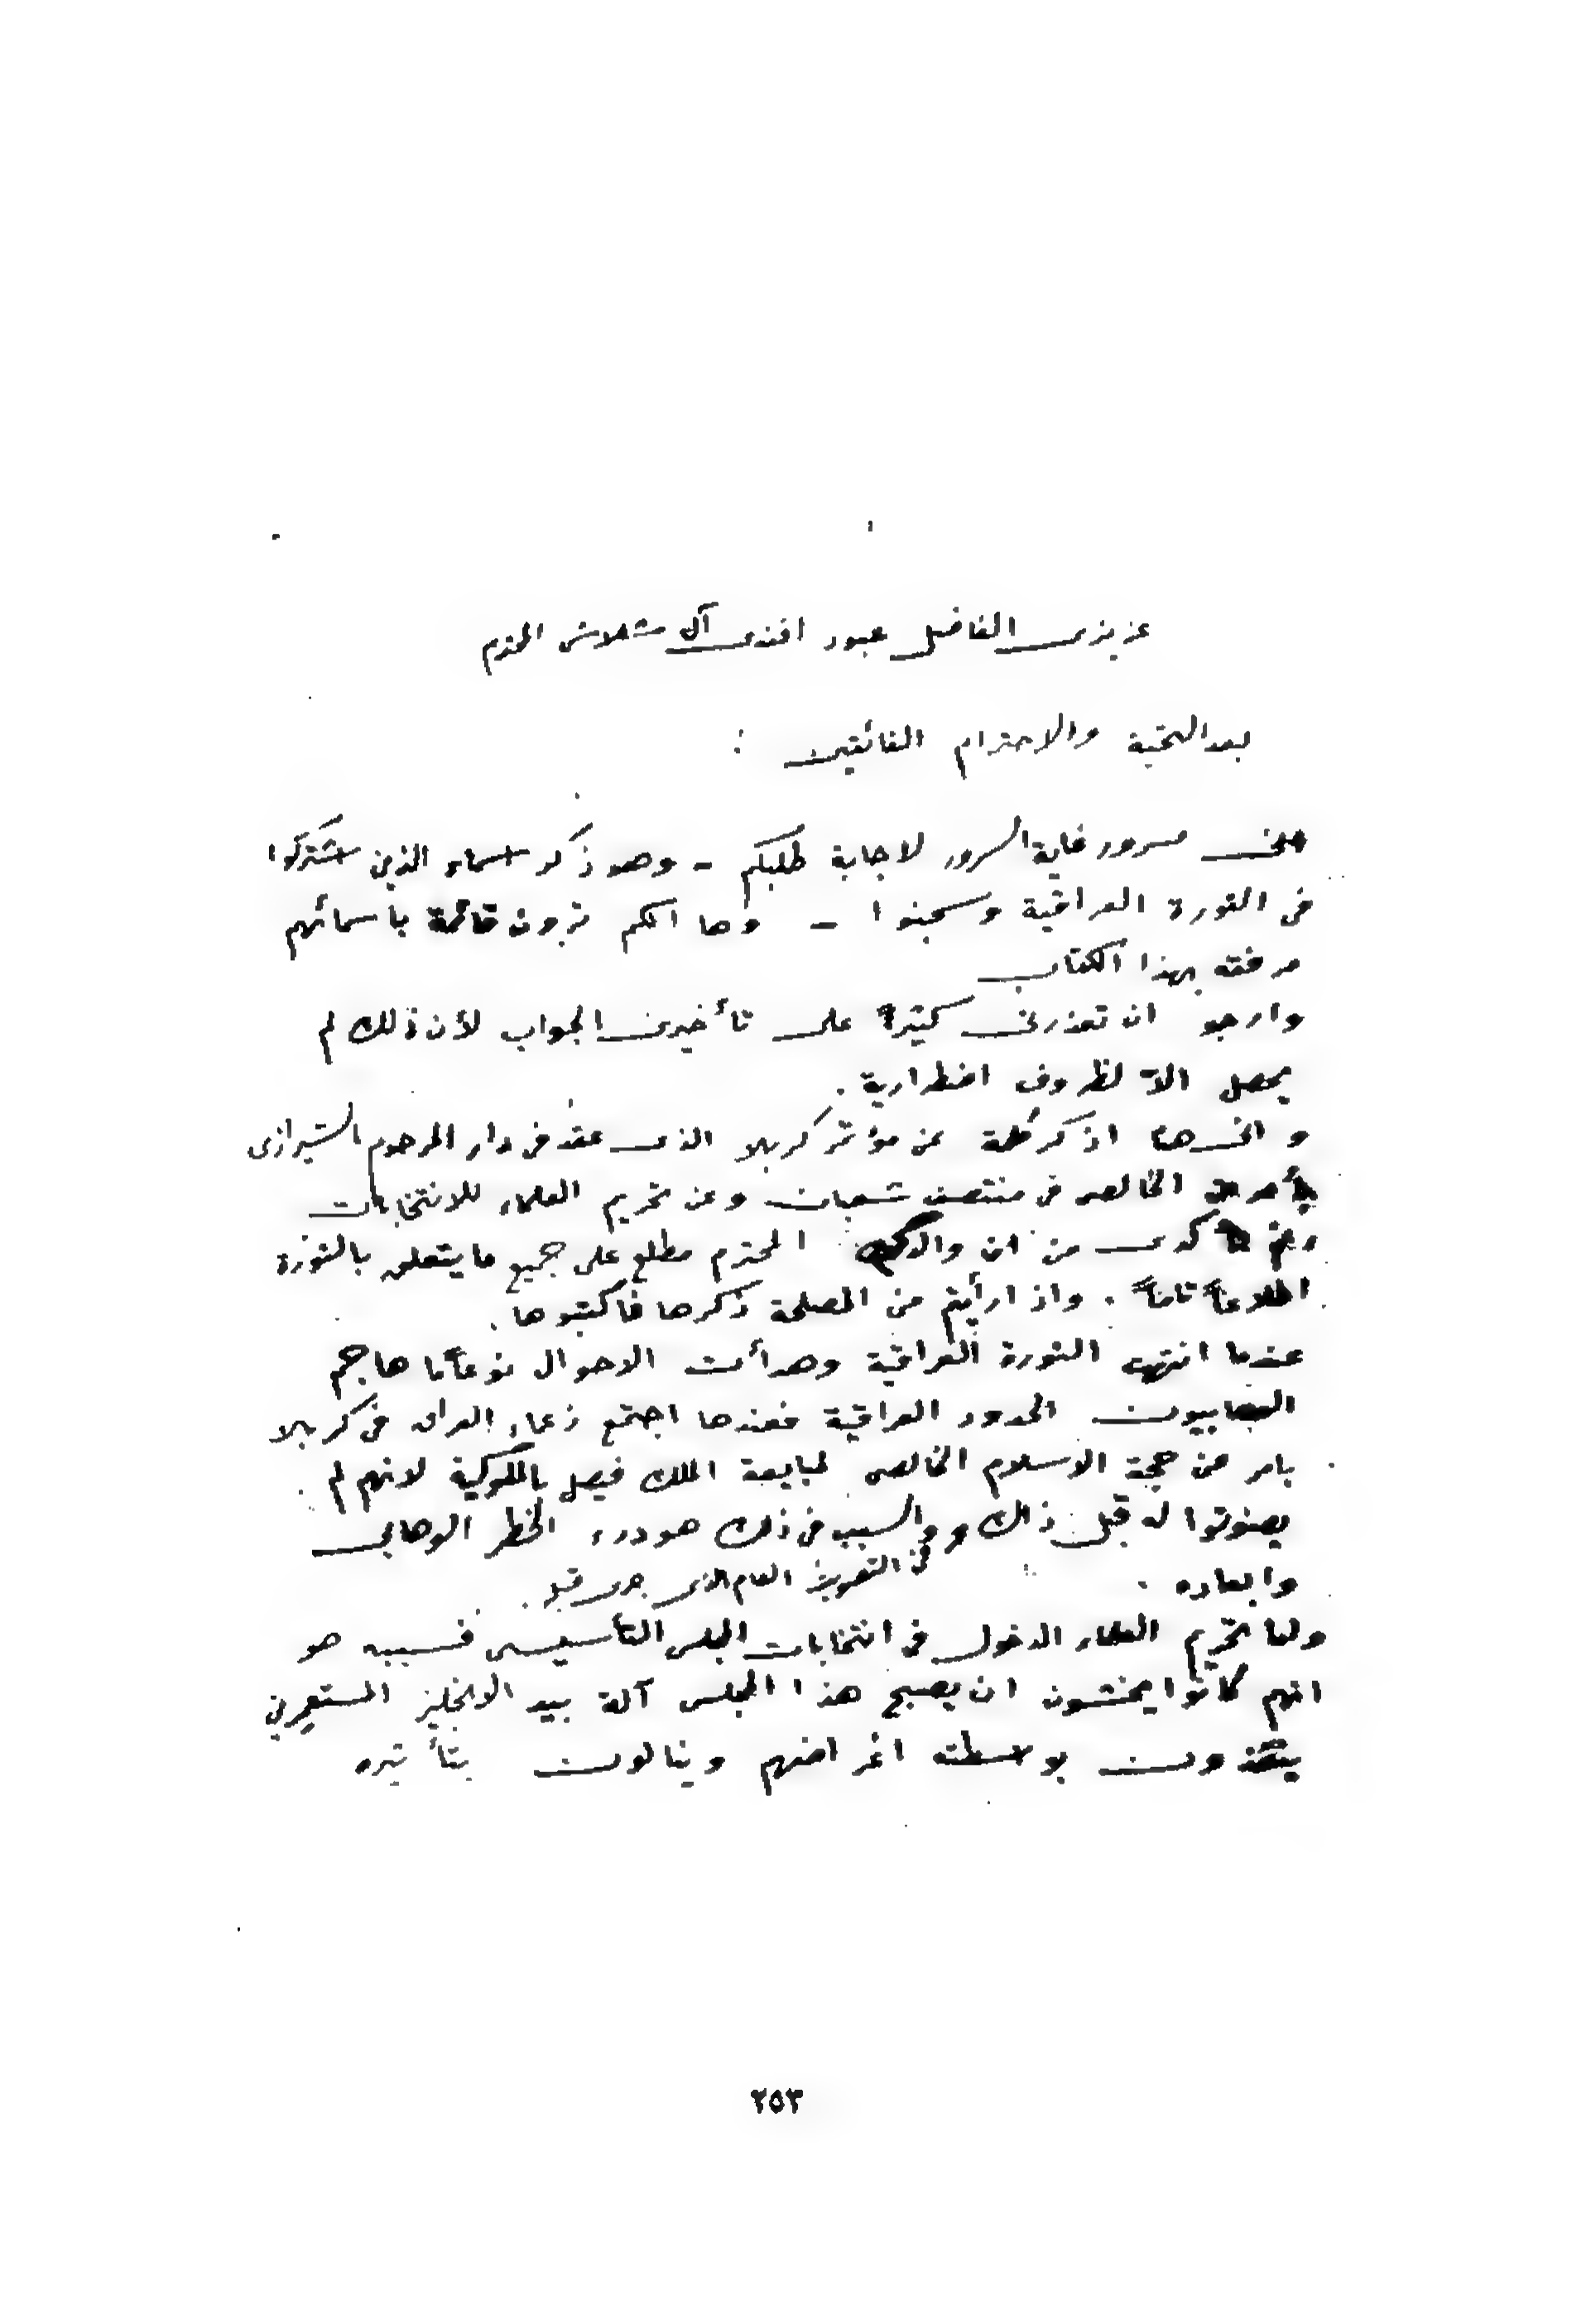 عزيزى الفاضل عبود افندى آل شلاش المحترم
بعد التحية والاحترام الفائقين :
مسرور غاية السرور لاجابة طلبكم - وهو ذكر اسماء الذين اشتركوا
فى الثورة العراقية وسجنوا - وها انكم ترون قائمة باسمائهم
مرفقه بهذا الكتاب
وارجو ان تعذرنى كثيراً على تأخيرى الجواب لأن ذلك لم
يحصل الاّ لظروف اضطرارية .
و انى هنا اذكر كلمة عن مؤتمر كربلا الذى عقد فى دار المرحوم الشيرازى
بأمر من الخالصى فى منتصف شعبان وعن تحريم العلماء للانتخابات
رغم تأكدى من ان والدكم المحترم مطلع على جميع ما يتعلق بالثورة
اطلاعاً تاماً . واذا رأيتم من المصلحة ذكرها فاكتبوها .
عندما انتهت الثورة العراقية وهدأت الاحوال نوعاً ما هاجم
الوهابيون الحدود العراقية فعندها اجتمع زعماء العراق فى كربلا
بامر من حجة الاسلام الخالصى لمبايعة الملك فيصل بالملوكية لانهم لم
يصوتوا له قبل ذلك و والسبب فى ذلك هو درء الخطر الوهابى
فى التصويت العام الذى جرى قبل .
وابعاده .
ولما تحريم العلماء الدخول فى انتخابات المجلس التأسيسى فسببه هو
انهم كانوا يخشون ان يصبح هذا المجلس آلة بيد الانجليز المستعمرين
ينفذون بواسطته اغراضهم وينالون بتأثيره
٢٥٣